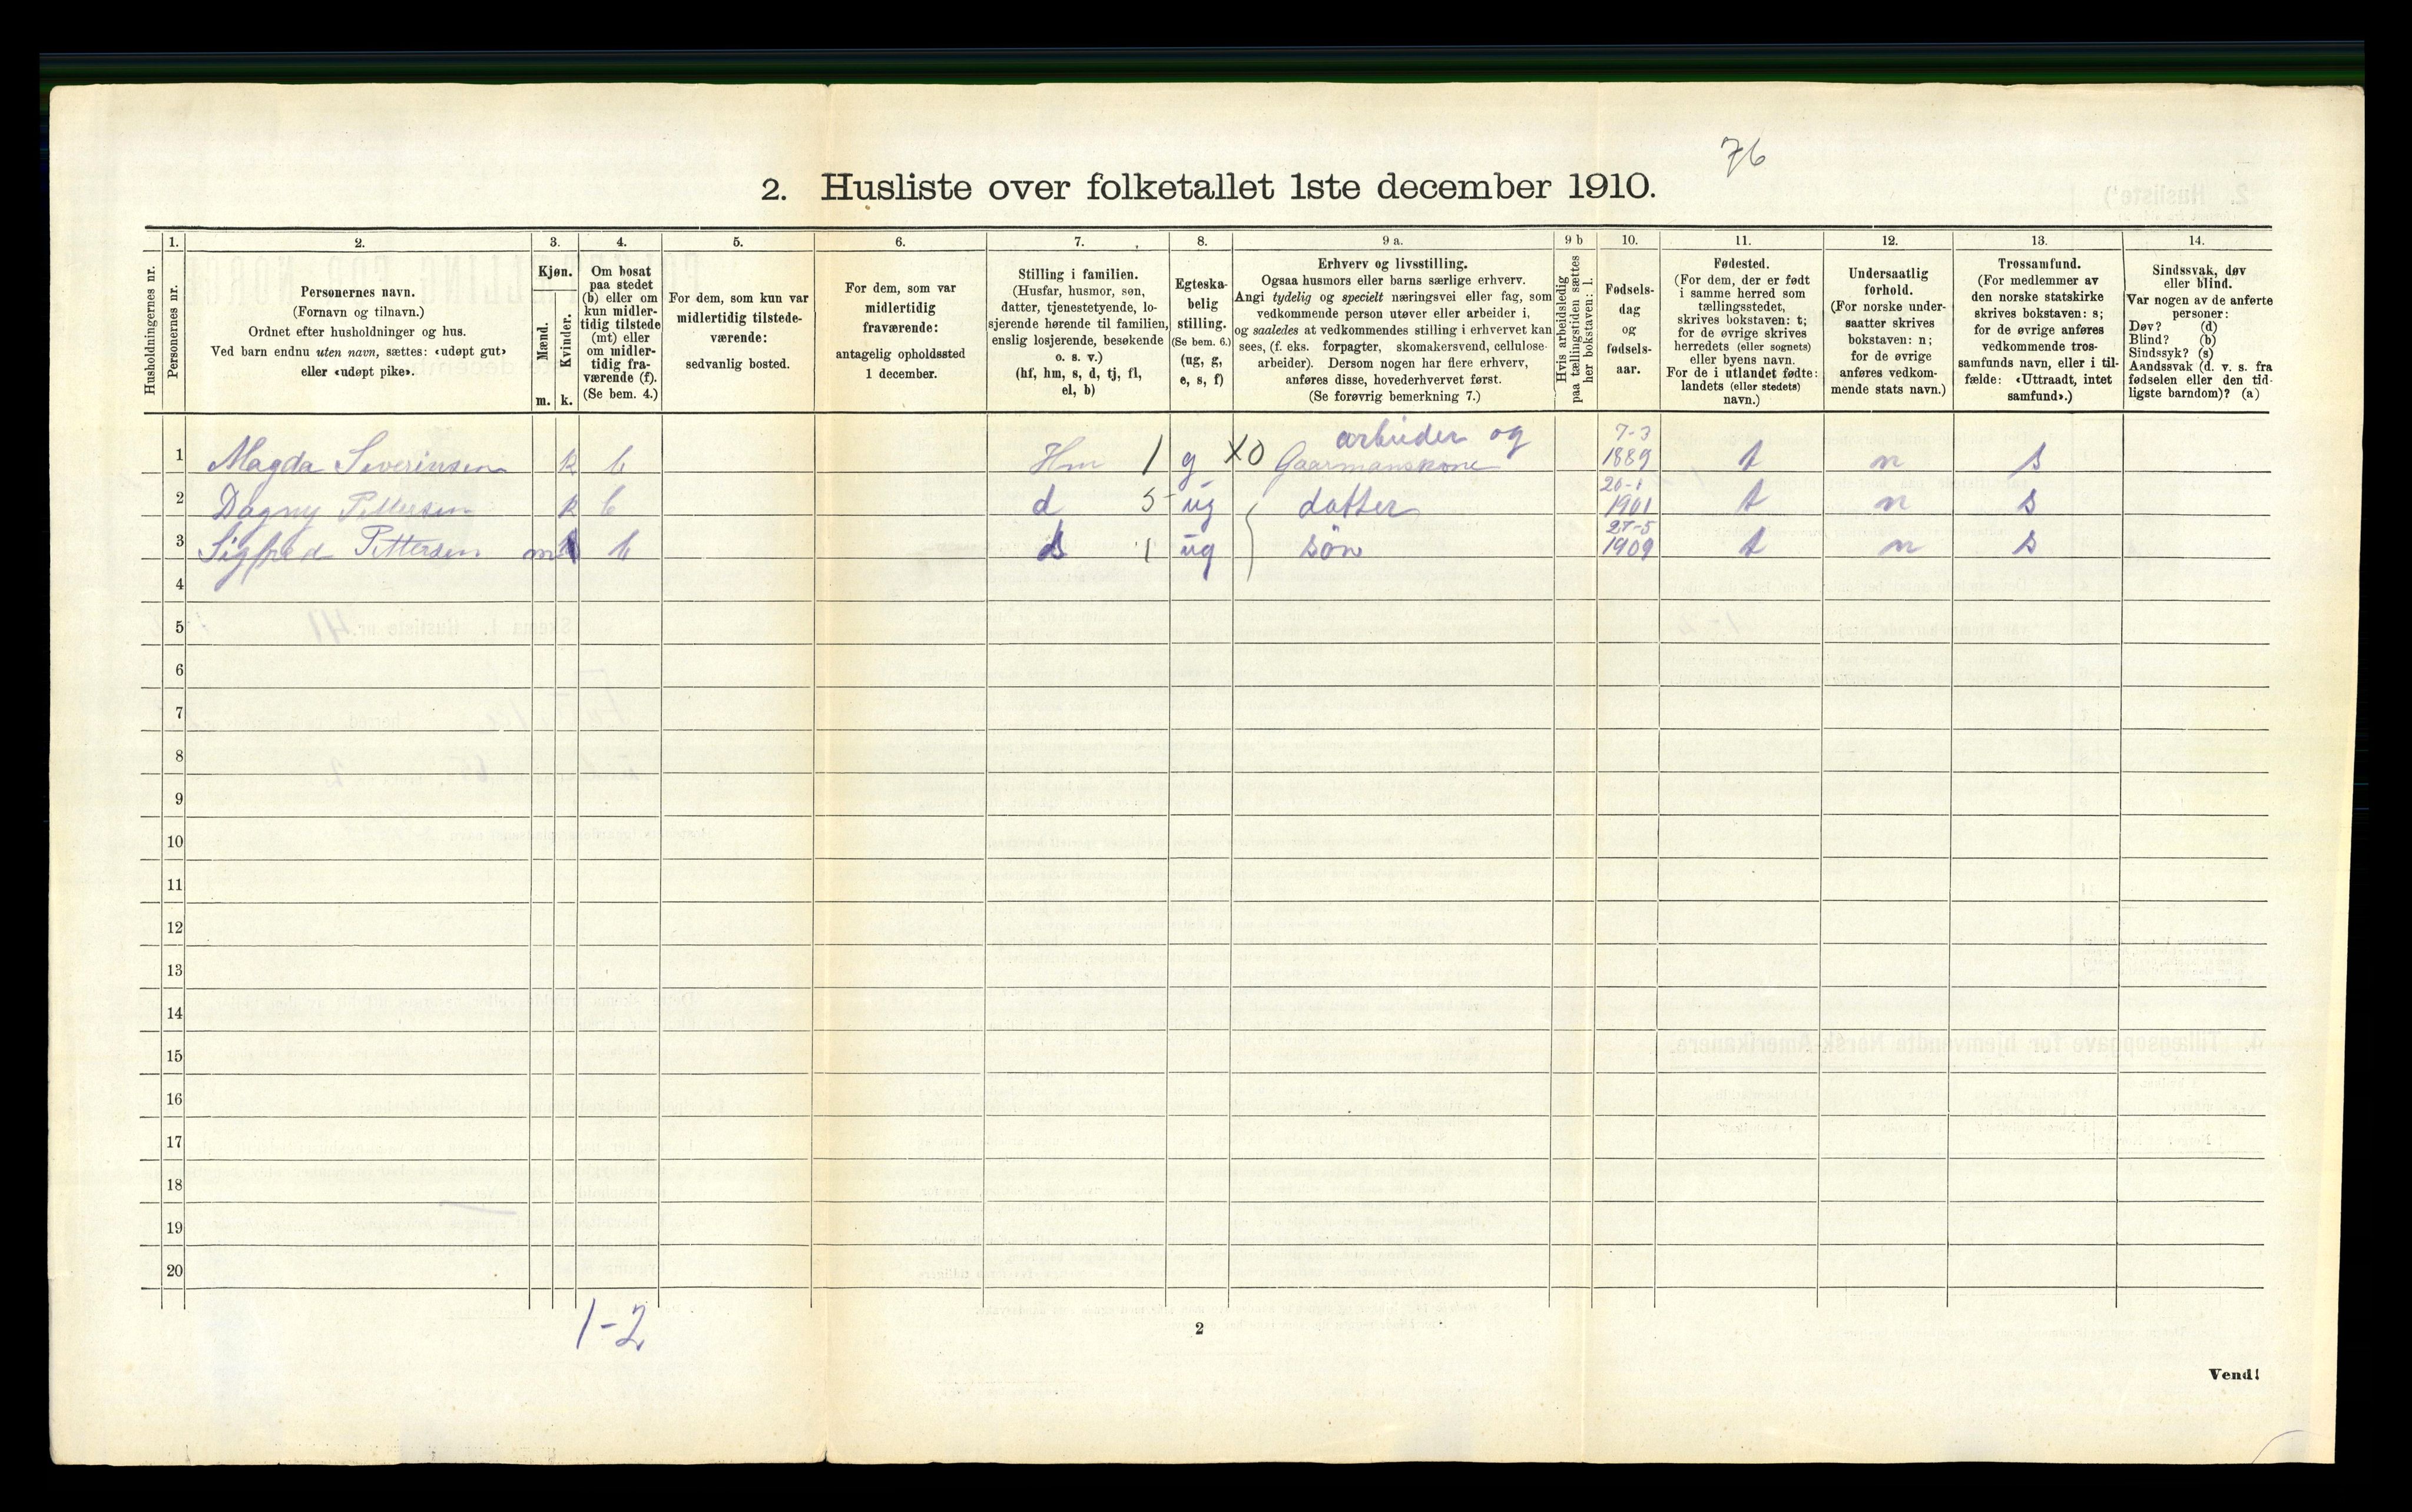 76
2. Husliste over folketallet 1ste december 1910.
Husholdningernes nr.
1.
Personernes nr.
2.
Personernes navn.
(Fornavn og tilnavn.)
Ordnet efter husholdninger og hus.
Ved barn endnu uten navn, sættes: «udøpt gut»
eller «udøpt pike».
3.
Kjøn.
Mænd.
Kvinder.
m. k.
4.
Om bosat
paa stedet
(b) eller om
kun midler-
tidig tilstede
(mt) eller
om midler-
tidig fra-
værende (f).
(Se bem. 4.)
5.
For dem, som kun var
midlertidig tilstede-
værende:
sedvanlig bosted.
6.
For dem, som var
midlertidig
fraværende:
antagelig opholdssted
1 december.
7.
Stilling i familien.
(Husfar, husmor, søn,
datter, tjenestetyende, lo-
sjerende hørende til familien,
enslig losjerende, besøkende
o. s. v.)
(hf, hm, s, d, tj, fl,
el, b)
8.
Egteska-
belig
stilling.
(Se bem. 6.)
(ug, g,
e, s, f)
9 a.
Erhverv og livsstilling.
Ogsaa husmors eller barns særlige erhverv.
Angi tydelig og specielt næringsvei eller fag, som
vedkommende person utøver eller arbeider i,
og saaledes at vedkommendes stilling i erhvervet kan
sees, (f. eks. forpagter, skomakersvend, cellulose-
arbeider). Dersom nogen har flere erhverv,
anføres disse, hovederhvervet først.
(Se forøvrig bemerkning 7.)
9 b
Hvis arbeidsledig
paa tællingstiden sættes
her bokstaven: l.
10.
Fødsels-
dag
og
fødsels-
aar.
11.
Fødested.
(For dem, der er født
i samme herred som
tællingsstedet,
skrives bokstaven: t;
for de øvrige skrives
herredets (eller sognets)
eller byens navn.
For de i utlandet fødte:
landets (eller stedets)
navn.)
12.
Undersaatlig
forhold.
(For norske under-
saatter skrives
bokstaven: n;
for de øvrige
anføres vedkom-
mende stats navn.)
13.
Trossamfund.
(For medlemmer av
den norske statskirke
skrives bokstaven: s;
for de øvrige anføres
vedkommende tros-
samfunds navn, eller i til-
fælde: «Uttraadt, intet
samfund».)
14.
Sindssvak, døv
eller blind.
Var nogen av de anførte
personer:
Døv? (d)
Blind? (b)
Sindssyk? (s)
Aandssvak (d. v. s. fra
fødselen eller den tid-
ligste barndom)? (a)
arbeider og 7-3
1 Magda Severinsen k b Hm 1 g X0 Gaarmanskone 1889 t n s
20-1
2 Dagny Pettersen k b d 5 ug datter 1901 t n s
27-5
3 Sigfred Pettersen m b s 1 ug søn 1909 t n s
4
5
6
7
8
9
10
11
12
13
14
15
16
17
18
19
20
1-2
2
Vend!